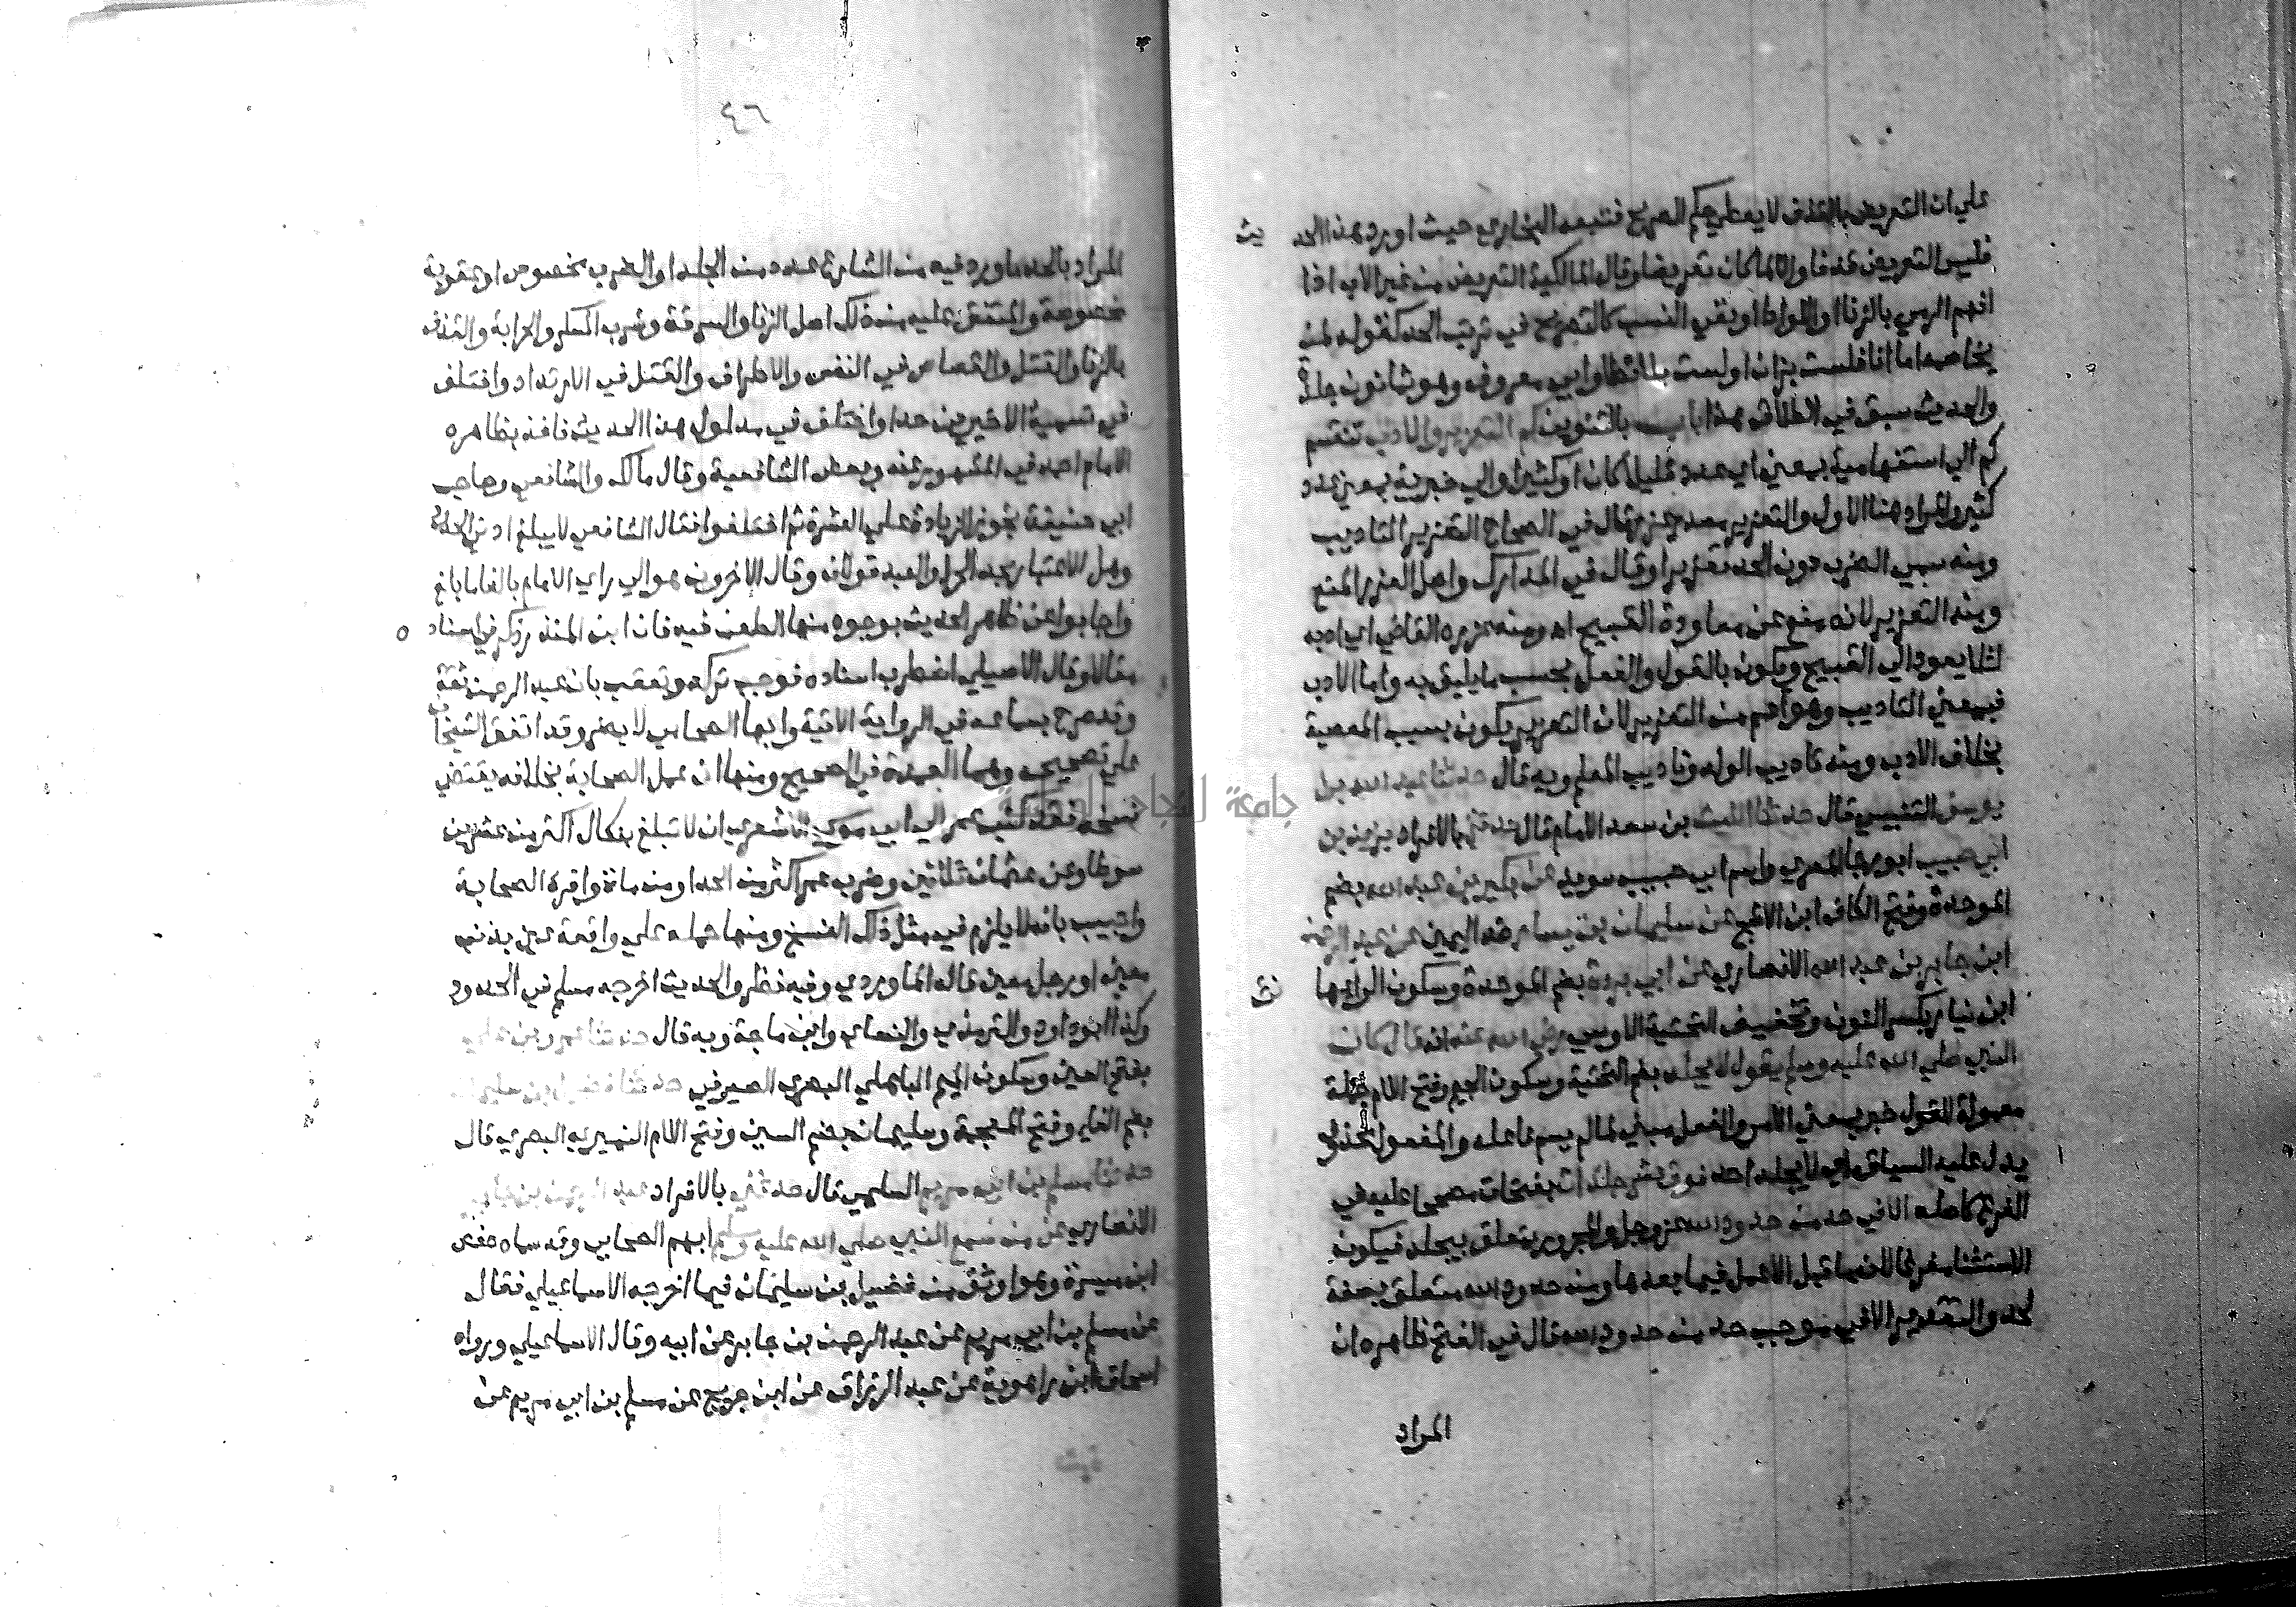 علي ان التعريض بالقذف لا يعطي حكم الصريح فتبعه البخاري حيث اورد هذا الحديث
فليس التعريض قذفا والا لما كان تعريضا وقال المالكية التعريض من غير الاب اذا
افهم الرمي بالزنا او اللواط او نفي النسب كالتصريح في ترتب الحد كقوله لمن
يخاصمه اما انا فلست بزان او لست بلائط او ابي معروف وهو ثمانون جلدة
والحديث سبق في الطلاق هذا باب بالتنوين كم التعزير والادب تنقسم
كم الي استفهامية بمعني اي عدد قليلا كان او كثيرا والي خبرية بمعني عدد
كثير والمراد هنا الاول والتعزير مصدر عزر قال في الصحاح التعزير التاديب
ومنه سمي الضرب دون الحد تعزيرا وقال في المدارك واصل العزر المنع
ومنه التعزير لانه منع عن معاودة القبيح اه ومنه عزره القاضي اي ادبه
لئلا يعود الي القبيح ويكون بالقول والفعل بحسب ما يليق به واما الادب
فبمعني التاديب وهو اعم من التعزير لان التعزير يكون بسبب المعصية
بخلاف الادب ومنه تاديب الوالد وتاديب المعلم وبه قال حدثنا عبد الله بن
يوسف التنيسي قال حدثنا الليث بن سعد الامام قال حدثني بالافراد يزيد بن
ابي حبيب ابو رجا المصري واسم ابي حبيب سويد عن بكير بن عبد الله بضم
الموحدة وفتح الكاف ابن الاشج عن سليمان بن يسار ضد اليمين عن عبد الرحمن
ابن جابر بن عبد الله الانصاري عن ابي بردة بضم الموحدة وسكون الرا هاني
ابن نيار بكسر النون وتخفيف التحتية الاوسي رضي الله عنه انه قال كان
النبي صلي الله عليه وسلم يقول لا يجلد بضم التحتية وسكون الجيم وفتح اللام جملة
معمولة للقول خبر بمعني الامر والفعل مبني لما لم يسم فاعله والمفعول محذوف
يدل عليه السياق اي لا يجلد احد فوق عشر جلدات بفتحات مصححا عليه في
الفرع كاصله الا في حد من حدود الله عز وجل والمجرور يتعلق بيجلد فيكون
الاستثنا مفرغا لان ما قبل الا عمل فيما بعدها ومن حدود الله متعلق بصفة
لحد والتقدير الا في موجب حد من حدود الله قال في الفتح ظاهره ان
المراد
٤٦
المراد بالحد ما ورد فيه من الشارع عدد من الجلد او الضرب مخصوص او عقوبة
مخصوصة والمتفق عليه من ذلك اصل الزنا والسرقة وشرب المسكر والحرابة والقذف
بالزنا والقتل والقصاص في النفس والاطراف والقتل في الارتداد واختلف
في تسمية الاخيرين حدا واختلف في مدلول هذا الحديث فاخذ بظاهره
الامام احمد في المشهور عنه وبعض الشافعية وقال مالك والشافعي وصاحبا
ابي حنيفة تجوز الزيادة علي العشرة ثم اختلفوا فقال الشافعي لا يبلغ ادني الحدود
وهل الاعتبار بحد الحر او العبد قولان وقال الاخرون هو الي راي الامام بالغا ما بلغ
واجابوا عن ظاهر الحديث بوجوه منها الطعن فيه فان ابن المنذر ذكر في اسناده
مقالا وقال الاصيلي اضطرب اسناده فوجب تركه وتعقب بان عبد الرحمن ثقة
وقد صرح بسماعه في الرواية الاتية وابهام الصحابي لا يضر وقد اتفق الشيخان
علي تصحيحه وهما العمدة في الصحيح ومنها ان عمل الصحابة بخلافه يقتضي
نسخه فقد كتب عمر الي ابي موسي الاشعري ان لا تبلغ بنكال اكثر من عشرين
سوطا وعن عثمان ثلاثين وضرب عمر اكثر من الحد او من مائة واقره الصحابة
واجيب بانه لا يلزم في مثل ذلك النسخ ومنها حمله علي واقعة عين بذنب
معين او رجل معين قاله الماوردي وفيه نظر والحديث اخرجه مسلم في الحدود
وكذا ابو داود والترمذي والنساي وابن ماجة وبه قال حدثنا عمرو بن علي
بفتح العين وسكون الميم الباهلي البصري الصيرفي حدثنا فضيل بن سليمان
بضم الفاء وفتح المعجمة وسليمان بضم السين وفتح اللام النميري البصري قال
حدثنا مسلم بن ابي مريم السلمي قال حدثني بالافراد عبد الرحمن بن جابر
الانصاري عن من سمع النبي صلي الله عليه وسلم ابهم الصحابي وقد سماه حفص
ابن ميسرة وهو اوثق من فضيل بن سليمان فيما اخرجه الاسماعيلي فقال
عن مسلم بن ابي مريم عن عبد الرحمن بن جابر عن ابيه وقال الاسماعيلي ورواه
اسحاق ابن راهوية عن عبد الرزاق عن ابن جريج عن مسلم بن ابي مريم عن